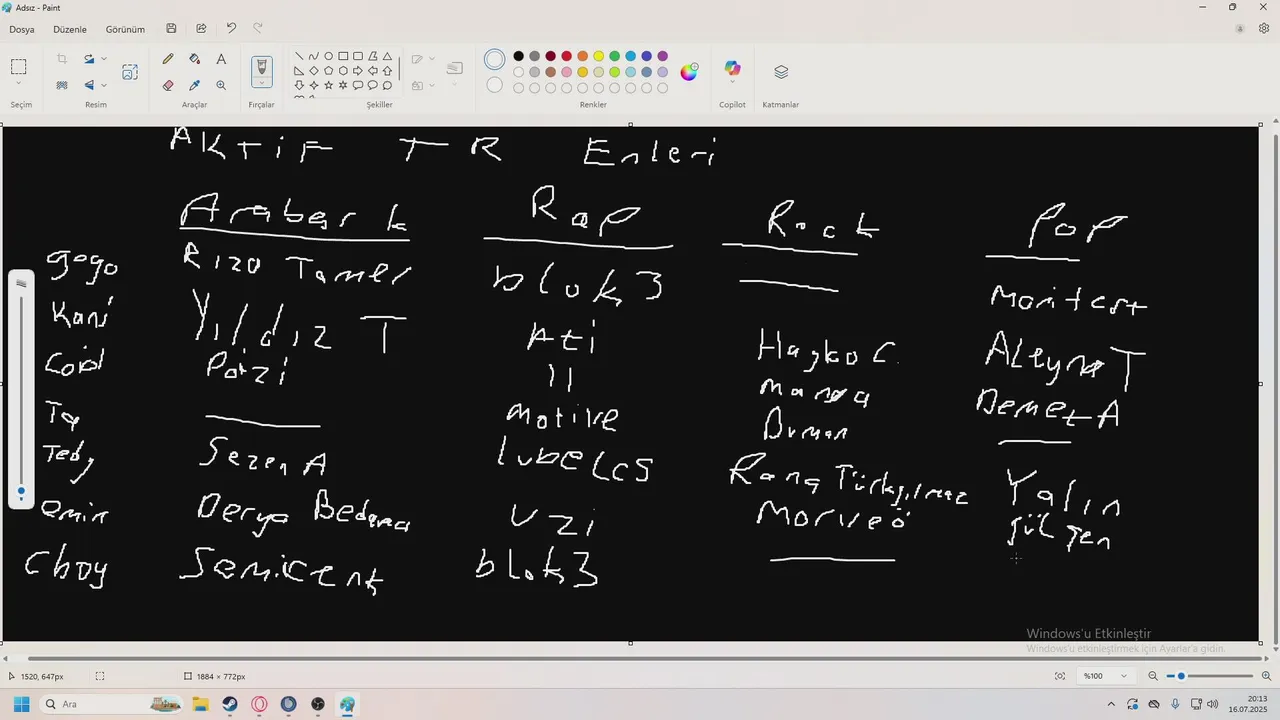 Adsız - Paint
Dosya Düzenle Görünüm
Seçim Resim Araçlar Fırçalar Şekiller Renkler Copilot Katmanlar
AKTiF TR Enleri
Arabesk Rap Rock Pop
gogo Rıza Tamer blok3 —
Kani Yıldız T Ati Hayko C. Moritest
Coid Poizi 11 manga Aleyna T
Ta — Motive Duman Demet A
Tedy Sezen A lvbel C5 —
emin Derya Bedava Uzi Rana Türkyılmaz Yalın
Choy Semicenk blok3 Morveö gülşen
—
Windows'u Etkinleştir
Windows'u etkinleştirmek için Ayarlar'a gidin.
1520, 647px 1884 × 772px %100
Ara 20:13
16.07.2025